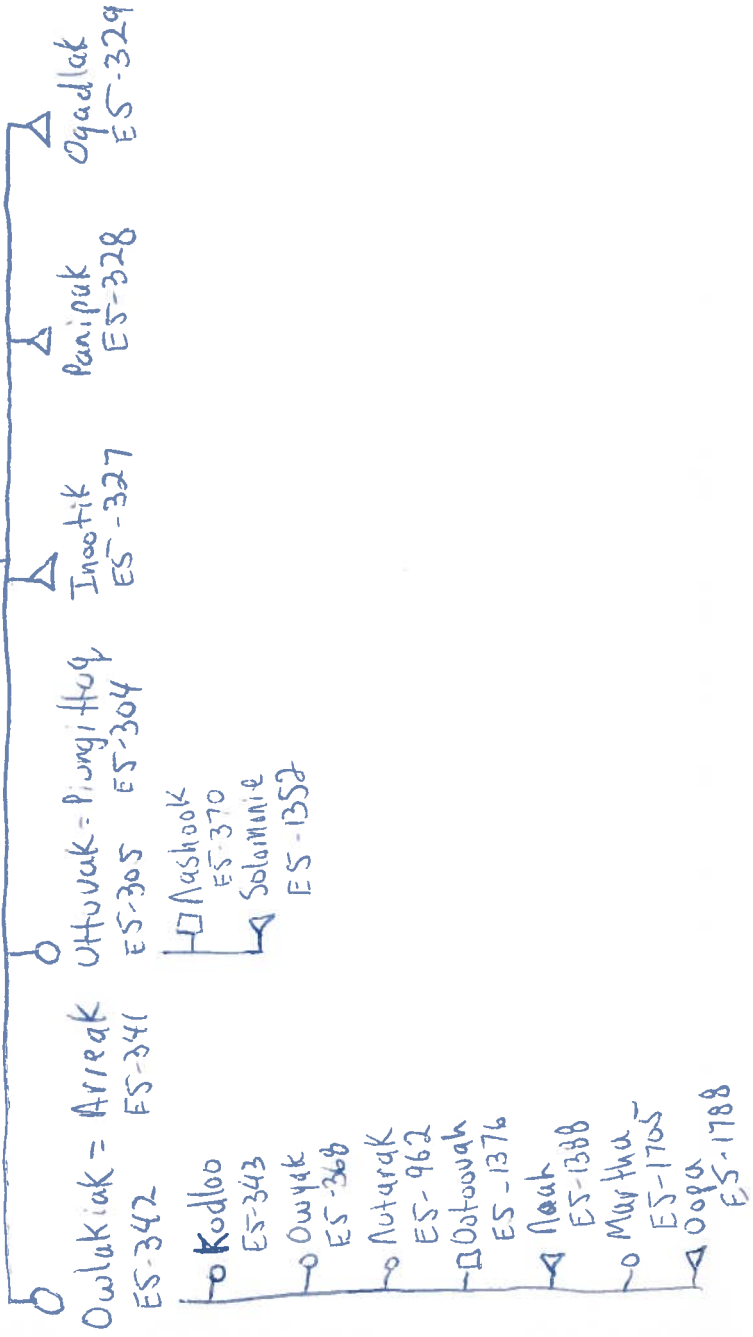 Owlakiak = Arreak
E5-342 E5-341
Kodloo
E5-343
Owyak
E5-368
Nutarak
E5-962
Ootoovah
E5-1376
Noah
E5-1388
Martha
E5-1705
Oopa
E5-1788
Uttuvak = Piungittuq
E5-305 E5-304
Nashook
E5-370
Solomonie
E5-1352
Inootik
E5-327
Panipak
E5-328
Ogadlak
E5-329